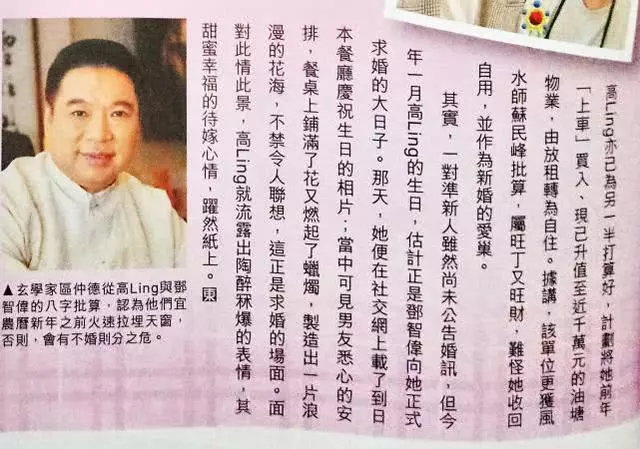 高Ling亦已為另一半打算好，計劃將她前年
「上車」買入、現已升值至近千萬元的油塘
物業，由放租轉為自住。據講，該單位更獲風
水師蘇民峰批算，屬旺丁又旺財，難怪她收回
自用，並作為新婚的愛巢。
其實，一對準新人雖然尚未公告婚訊，但今
年一月高Ling的生日，估計正是鄧智偉向她正式
求婚的大日子。那天，她便在社交網上載了到日
本餐廳慶祝生日的相片；當中可見男友悉心的安
排，餐桌上鋪滿了花又燃起了蠟燭，製造出一片浪
漫的花海，不禁令人聯想，這正是求婚的場面。面
對此情此景，高Ling就流露出陶醉冧爆的表情，其
甜蜜幸福的待嫁心情，躍然紙上。東
▲玄學家區仲德從高Ling與鄧
智偉的八字批算，認為他們宜
農曆新年之前火速拉埋天窗，
否則，會有不婚則分之危。